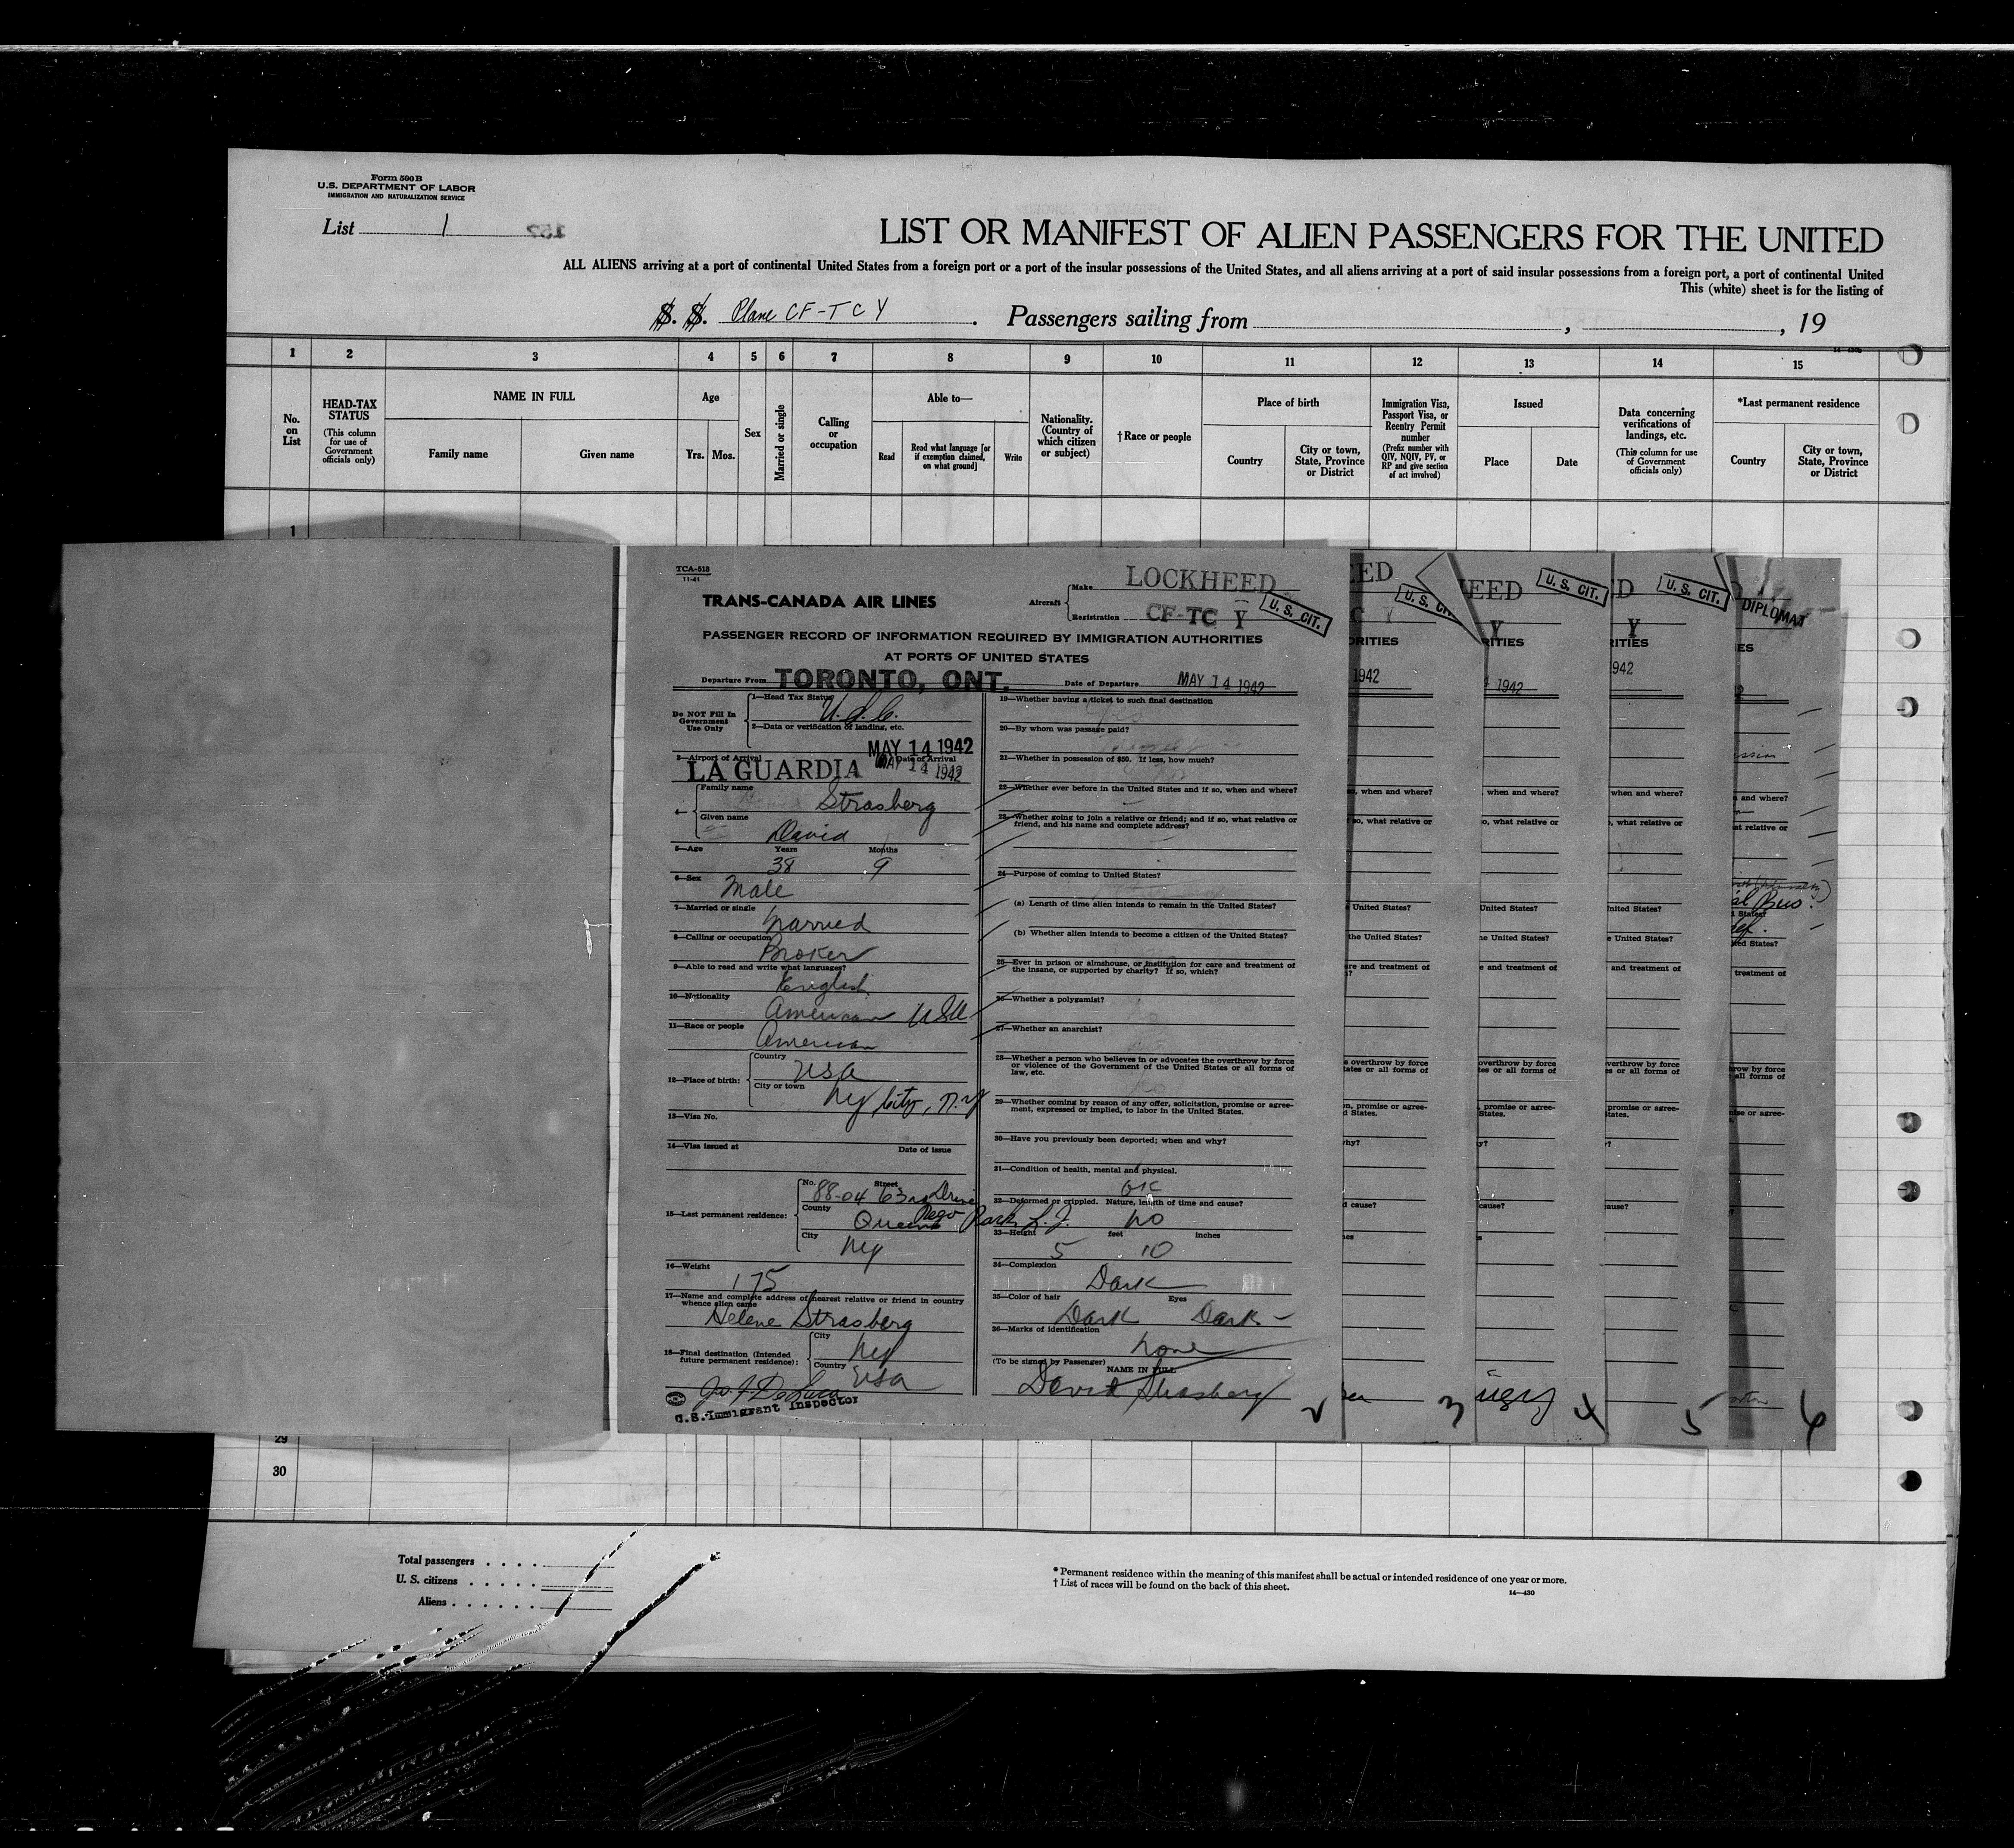 Form 500 B
U.S. DEPARTMENT OF LABOR
IMMIGRATION AND NATURALIZATION SERVICE
List 1 157
LIST OR MANIFEST OF ALIEN PASSENGERS FOR THE UNITED
ALL ALIENS arriving at a port of continental United States from a foreign port or a port of the insular possessions of the United States, and all aliens arriving at a port of said insular possessions from a foreign port, a port of continental United
This (white) sheet is for the listing of
S. S. Plane CF-TCY. Passengers sailing from , , 19
1 2 3 4 5 6 7 8 9 10 11 12 13 14 15
No. on List
HEAD-TAX STATUS (This column for use of Government officials only)
NAME IN FULL
Family name Given name
Age
Yrs. Mos.
Sex
Married or single
Calling or occupation
Able to—
Read Read what language [or if exemption claimed, on what ground] Write
Nationality. (Country of which citizen or subject)
†Race or people
Place of birth
Country City or town, State, Province or District
Immigration Visa, Passport Visa, or Reentry Permit number (Prefix number with QIV, NQIV, PV, or RP and give section of act involved)
Issued
Place Date
Data concerning verifications of landings, etc. (This column for use of Government officials only)
*Last permanent residence
Country City or town, State, Province or District
1
TCA-518
11-41
TRANS-CANADA AIR LINES
Aircraft Make LOCKHEED
Registration CF-TC Y
U. S. CIT.
PASSENGER RECORD OF INFORMATION REQUIRED BY IMMIGRATION AUTHORITIES
AT PORTS OF UNITED STATES
Departure From TORONTO, ONT. Date of Departure MAY 14 1942
Do NOT Fill In Government Use Only
1—Head Tax Status U.S.C.
2—Data or verification of landing, etc.
MAY 14 1942
3—Airport of Arrival Date of Arrival
LA GUARDIA MAY 14 1942
4— Family name Strasberg
Given name David
5—Age Years 38 Months 9
6—Sex Male
7—Married or single Married
8—Calling or occupation Broker
9—Able to read and write what languages? English
10—Nationality American USA
11—Race or people American
12—Place of birth: Country USA
City or town NY City, N.Y
13—Visa No.
14—Visa issued at Date of issue
15—Last permanent residence: No. 88-04 Street 63rd Drive
County Queens Rego Park L. I.
City NY
16—Weight 175
17—Name and complete address of nearest relative or friend in country
whence alien came
Helene Strasberg
18—Final destination (Intended future permanent residence): City NY
Country USA
U.S. Immigrant Inspector
19—Whether having a ticket to such final destination
20—By whom was passage paid?
21—Whether in possession of $50. If less, how much?
22—Whether ever before in the United States and if so, when and where?
23—Whether going to join a relative or friend; and if so, what relative or
friend, and his name and complete address?
24—Purpose of coming to United States?
(a) Length of time alien intends to remain in the United States?
(b) Whether alien intends to become a citizen of the United States?
25—Ever in prison or almshouse, or institution for care and treatment of
the insane, or supported by charity? If so, which?
26—Whether a polygamist?
27—Whether an anarchist?
28—Whether a person who believes in or advocates the overthrow by force
or violence of the Government of the United States or all forms of
law, etc.
29—Whether coming by reason of any offer, solicitation, promise or agree-
ment, expressed or implied, to labor in the United States.
30—Have you previously been deported; when and why?
31—Condition of health, mental and physical.
OK
32—Deformed or crippled. Nature, length of time and cause?
no
33—Height 5 feet 10 inches
34—Complexion Dark
35—Color of hair Dark Eyes Dark
36—Marks of identification None
(To be signed by Passenger) NAME IN FULL
David Strasberg
2 3 4 5 6
U. S. CIT.
U. S. CIT.
U. S. CIT.
DIPLOMAT
29
30
Total passengers
U. S. citizens
Aliens
* Permanent residence within the meaning of this manifest shall be actual or intended residence of one year or more.
† List of races will be found on the back of this sheet.
14—430